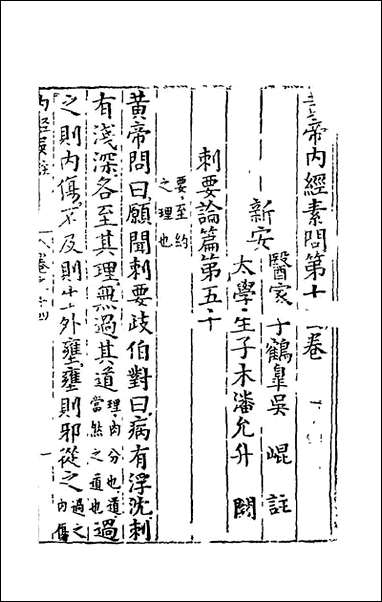 帝內經素問第十 卷
新安
醫家子鶴臯吳崐註
太學生子木潘允升閱
刺要論篇第五十
要至約
之理也
黃帝問曰願聞刺要歧伯對曰病有浮沈刺
有淺深各至其理無過其道理肉分也道當然之道也過
之則內傷不及則生外壅壅則邪從之過之內傷